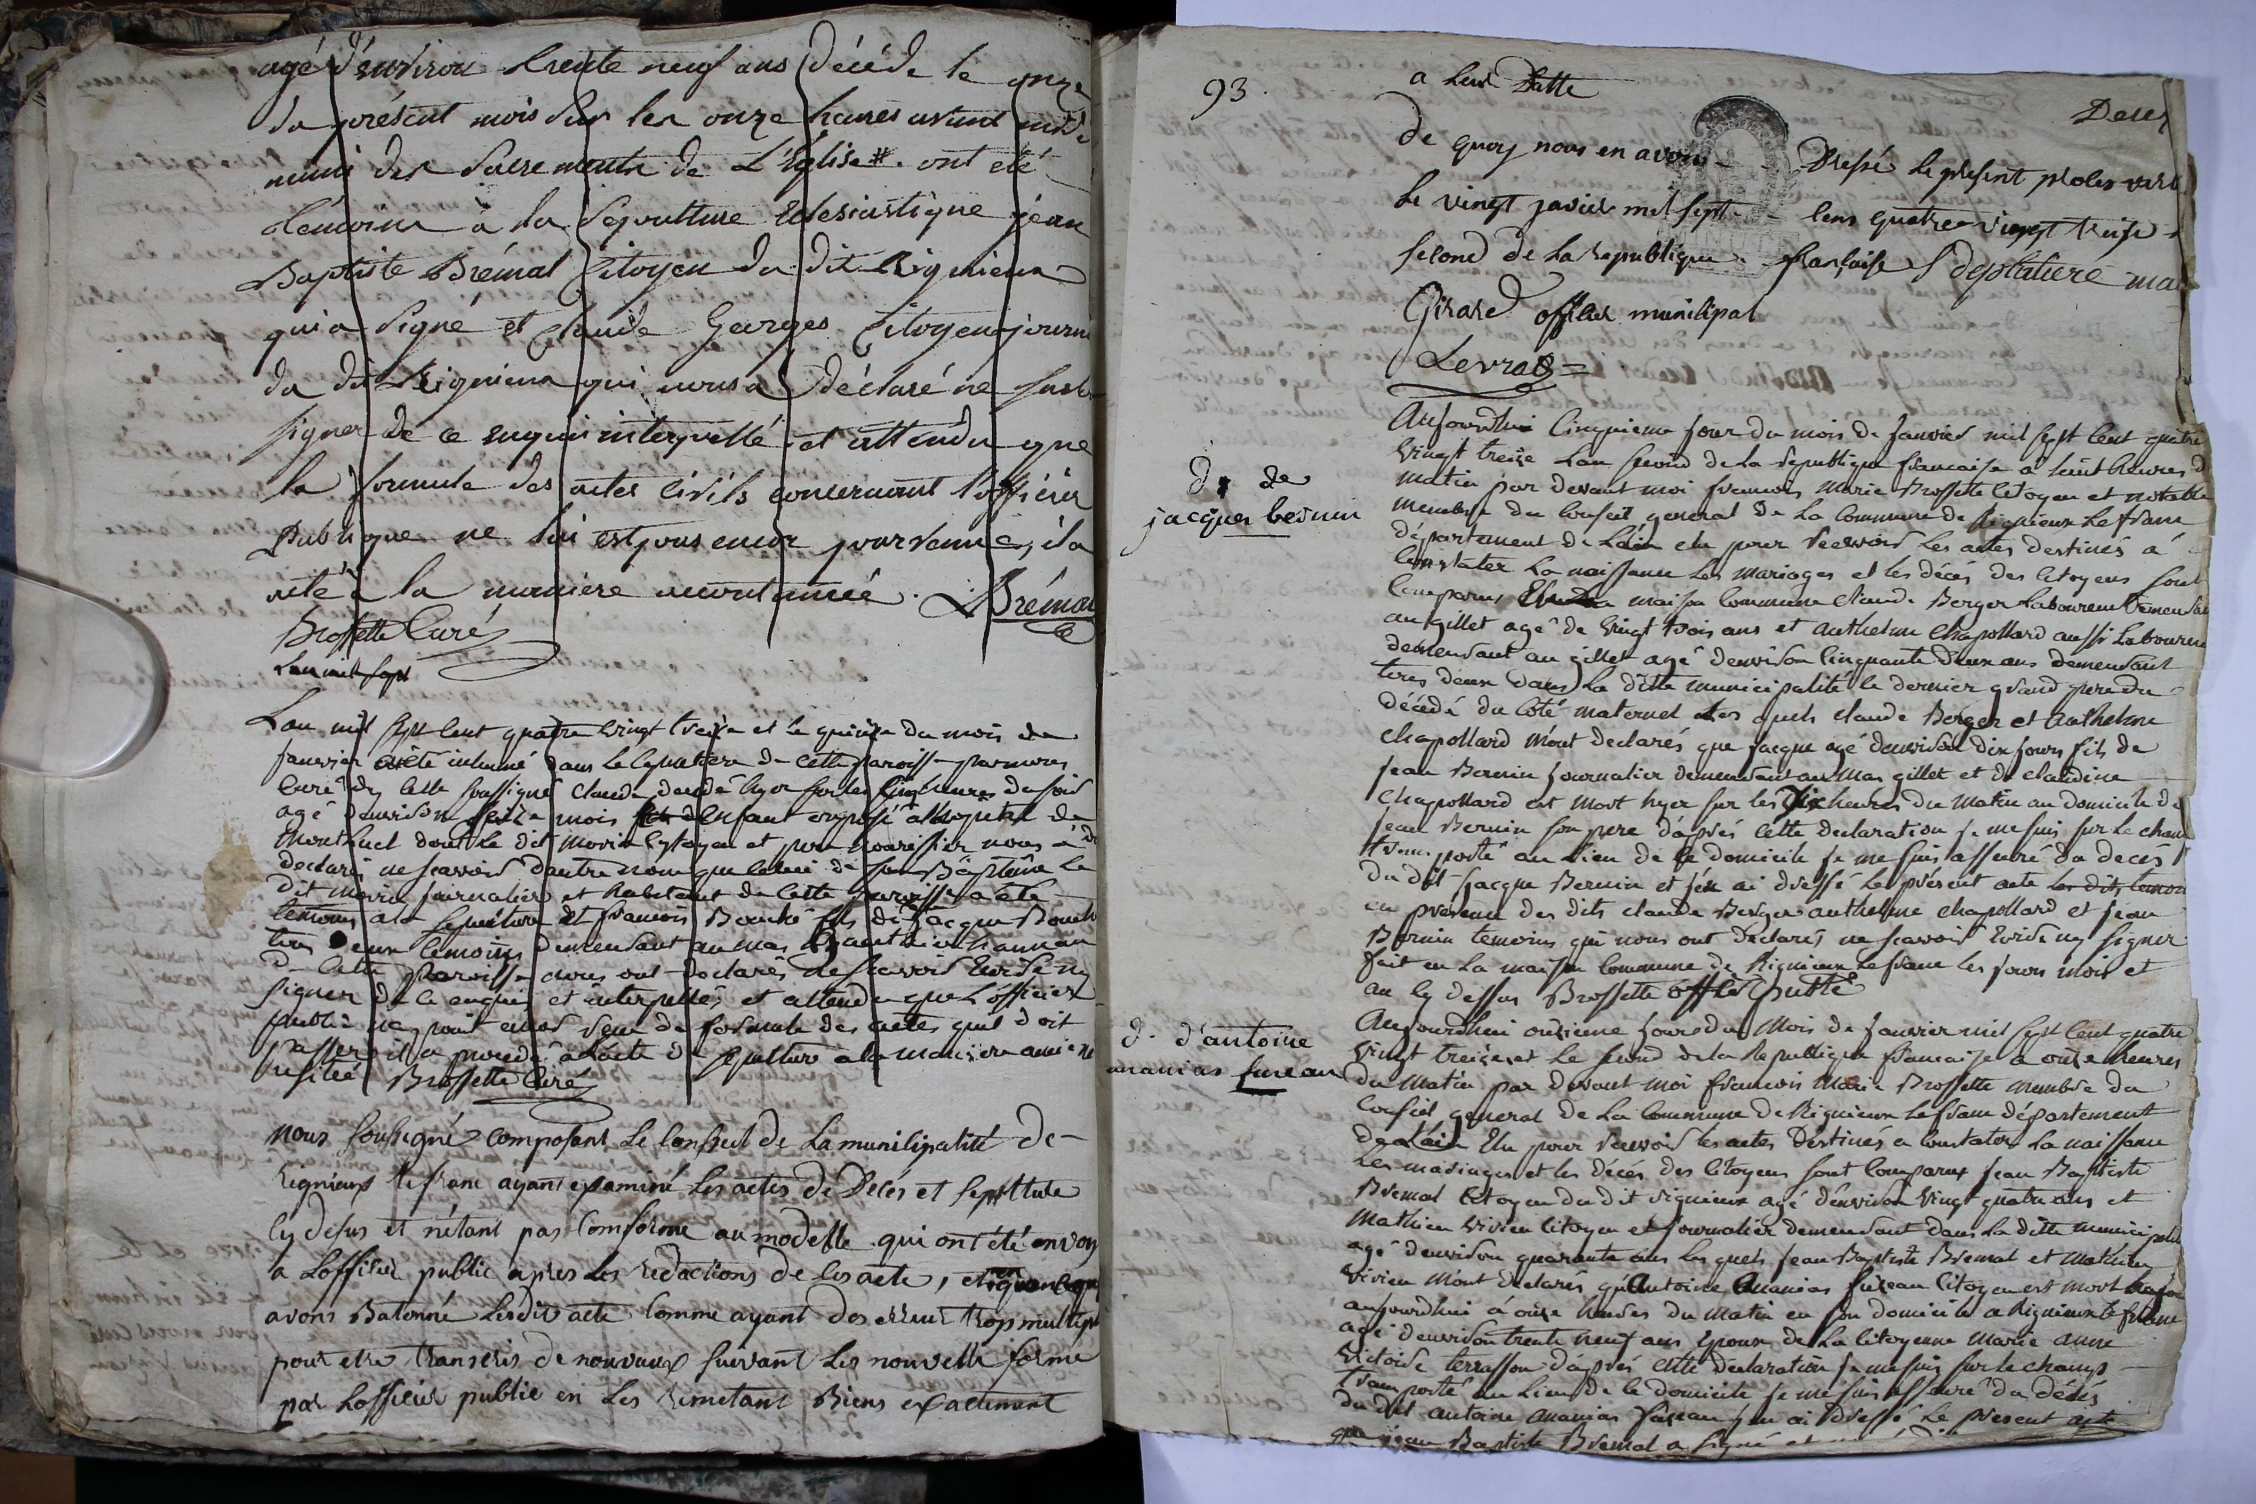 agé d'environ trente neuf ans décédé le onze
du présent mois sur les onze heures avant midi
muni des sacrements de L'Eglise #. ont été
témoins à la Sépoulture Eclesiastique jean
Baptiste Brémal Citoyen du dit Rignieux
qui a signé et Claude Georges Citoyen journ
du dit Rignieux qui nous a déclaré ne savoir
signer de ce enquis interpellé et attendu que
la formule des actes civils concernant l'officier
Publique ne lui est pas encor parvenue, il a
acté à la maniere accoutumée. Brémal
Brossette Curé
Lan mil sept
Lan mil sept cent quatre vingt treize et le quinze du mois de
janvier a été inhumé dans le Cymetiere de cette paroisse par nous
curé dy celle soussigné Claude decedé hyer sur les cinq heures du soir
agé denviron seize mois enfant exposé à l'hopital de
Montluel dont le dit Morin Cytoyen et pere nourissier nous a
declaré ne scavoir d'autre nom que celui de son Baptême Le
dit Morin journalier et habitant de cette paroisse a été
temoins a la sepulture et francois Bouché fils de jacque Bouché
tous deux temoins demeurant au mas
de cette paroisse nous ont declarés ne scavoir Ecrire ny
signer de ce enquis et interpellés et attendu que L'officier
public na point encor reçu de formule des actes quil doit
passer il a procedé a lacte de sepulture a la maniere anciene
usitée Brossette Curé
nous soussigné composant Le Conseil de La municipalité de
Rignieux le franc ayant examiné Les actes de Deces et sepulture
Cy desus et nétant pas Comforme au modelle qui ont été envoy
a Lofficier public apres les Redactions de ces acte,
avons Batonné Lesdit acte Comme ayant des erreur trop multip
pour etre transcris de nouveaux suivant Les nouvelle forme
par Lofficier public en Les Remetant Biens exactement
93.
a Leur Datte
Deces
de quoy nous en avons Dressé le present proces verb
le vingt janvier mil sept cens quatre vingt treise
second de la republique française Desplatiere ma
Girard officier municipal
Levrat
Aujourdhui Cinquieme jour du mois de janvier mil sept cent quatre
vingt treize Lan second de la republique francaise a huit heures d
matin par devant moi francois Marie Brossette Citoyen et notable
membre du conseil general de La Commune de Rignieux Le franc
département de L'ain elu pour recevoir Les actes destinés à
Constater La naissance Les mariages et les décés des Citoyens sont
Comparus maison Commune Claude Berger Laboureur demeurant
au gillet agé de vingt trois ans et anthelme Chapollard aussi Laboureur
demeurant au gillet agé denviron Cinquante deux ans demeurant
tous deux dans La ditte municipalité le dernier grand pere du
décédé du Coté maternel Les quels Claude Berger et anthelme
Chapollard m'ont declarés que jacque agé denviron dix jours fils de
jean Bernin journalier demeurant au Mas gillet et de Claudine
Chapollard est mort hyer sur les dix heures du matin au domicile de
jean Bernin son pere d'aprés cette declaration je me suis sur le champ
transporté au Lieu de ce domicile je me suis asseuré du decés
du dit jacque Bernin et j'en ai dressé Le présent acte Les dits temoins
en presence des dits Claude Berger anthelme Chapollard et jean
Bernin temoins qui nous ont declarés ne scavoir Ecrire ny signer
fait en La maison Commune de Rignieux Le franc les jours mois et
an Cy dessus Brossette off Publc
d. de
jacques bernin
Aujourdhui onzieme jour du Mois de janvier mil sept Cent quatre
vingt treize et Le second de la Republique francaise a onze heures
du Matin par devant moi francois Marie Brossette membre du
Conseil general de La Commune de Rignieux Le franc département
de L'ain Elu pour recevoir les actes Destinés a Constater La naissance
Les mariages et les décés des Citoyens sont Comparus jean Baptiste
Bremal Citoyen du dit rignieux agé denviron vingt quatre ans et
Mathieu Vivien Citoyen et journalier demeurant dans La ditte municipalité
agé denviron quarante ans Les quels jean Baptiste Bremal et Mathieu
Vivien m'ont declarés qu'Antoine Ananias fureau Citoyen est mort
aujourdhui à onze heures du matin en son domicile a Rignieux le franc
agé denviron trente neuf ans Epoux de La Citoyenne Marie anne
Victoire terrasson d'aprés cette declaration je me suis sur le champ
transporté au Lieu de ce domicile je me suis asseuré du décés
du dit antoine ananias fureau j'en ai dressé Le present acte
que jean Baptiste Bremal a signé et
d. d'antoine
ananias fureau